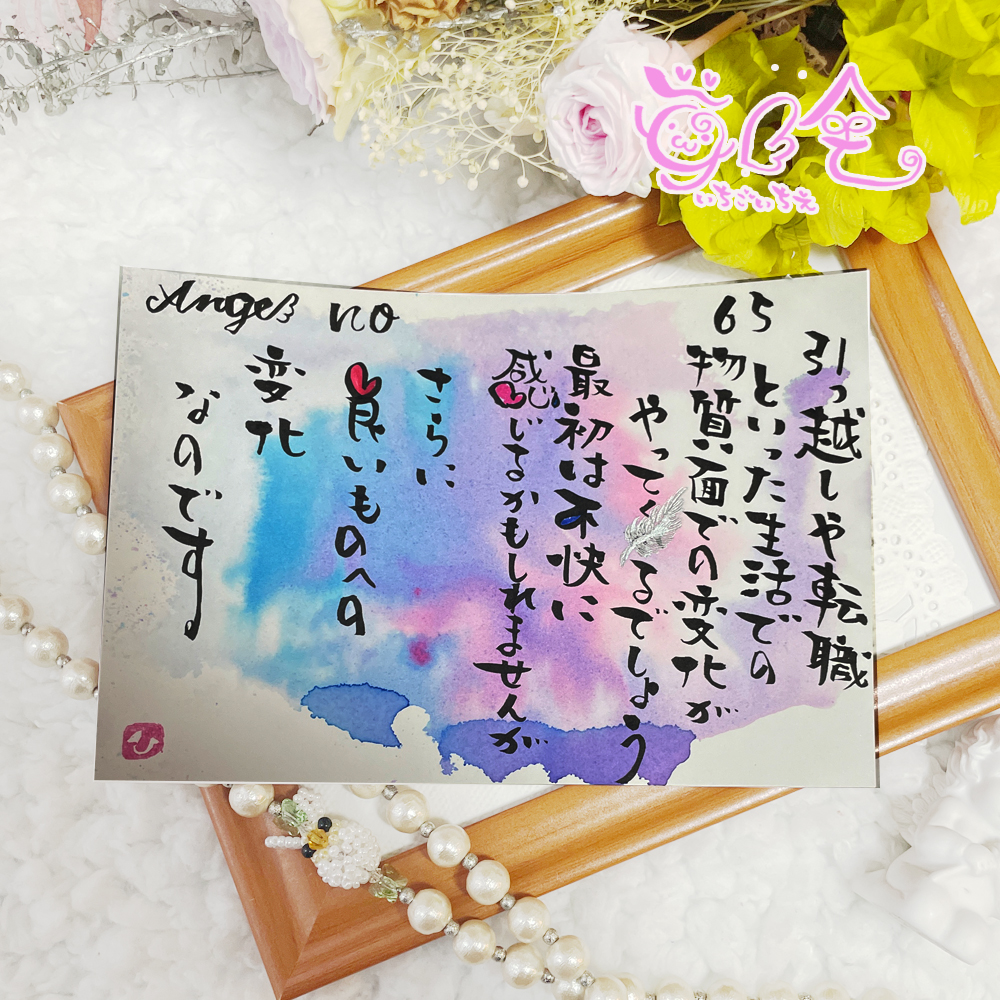 Angel no 65
引っ越しや転職
といった生活での
物質面での変化が
やってくるでしょう
最初は不快に
感じるかもしれませんが
さらに
良いものへの
変化
なのです
いちごいちえ